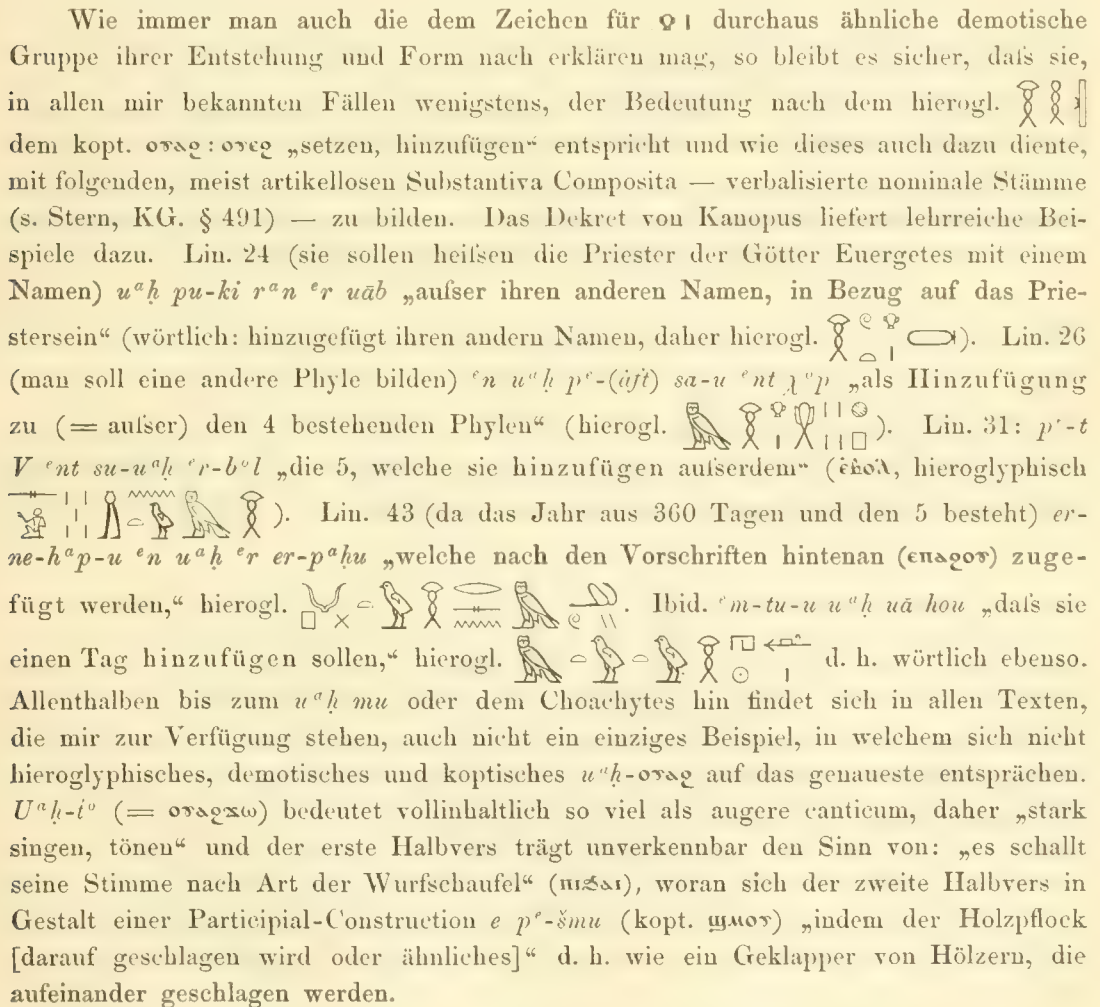 Wie immer man auch die dem Zeichen für durchaus ähnliche demotische
Gruppe ihrer Entstehung und Form nach erklären mag, so bleibt es sicher, daſs sie,
in allen mir bekannten Fällen wenigstens, der Bedeutung nach dem hierogl.
dem kopt. ⲟⲩⲁϩ : ⲟⲩⲉϩ „setzen, hinzufügen“ entspricht und wie dieses auch dazu diente,
mit folgenden, meist artikellosen Substantiva Composita — verbalisierte nominale Stämme
(s. Stern, KG. § 491) — zu bilden. Das Dekret von Kanopus liefert lehrreiche Bei-
spiele dazu. Lin. 24 (sie sollen heiſsen die Priester der Götter Euergetes mit einem
Namen) uᵃḥ pu-ki rᵃn ᵉr uāb „auſser ihren anderen Namen, in Bezug auf das Prie-
stersein“ (wörtlich: hinzugefügt ihren andern Namen, daher hierogl. ). Lin. 26
(man soll eine andere Phyle bilden) ᵉn uᵃḥ pᵉ-(àft) sa-u ᵉnt χᵒp „als Hinzufügung
zu (= auſser) den 4 bestehenden Phylen“ (hierogl. ). Lin. 31: pᵉ-t
V ᵉnt su-uᵃḥ ᵉr-bᵒl „die 5, welche sie hinzufügen auſserdem“ (ⲉⲃⲟⲗ, hieroglyphisch
). Lin. 43 (da das Jahr aus 360 Tagen und den 5 besteht) er-
ne-hᵃp-u ᵉn uᵃḥ ᵉr er-pᵃḥu „welche nach den Vorschriften hintenan (ⲉⲡⲁϩⲟⲩ) zuge-
fügt werden,“ hierogl. . Ibid. ᵉm-tu-u uᵃḥ uā hou „daſs sie
einen Tag hinzufügen sollen,“ hierogl. d. h. wörtlich ebenso.
Allenthalben bis zum uᵃḥ mu oder dem Choachytes hin findet sich in allen Texten,
die mir zur Verfügung stehen, auch nicht ein einziges Beispiel, in welchem sich nicht
hieroglyphisches, demotisches und koptisches uᵃḥ-ⲟⲩⲁϩ auf das genaueste entsprächen.
Uᵃḥ-tᵒ (= ⲟⲩⲁϩϫⲱ) bedeutet vollinhaltlich so viel als augere canticum, daher „stark
singen, tönen“ und der erste Halbvers trägt unverkennbar den Sinn von: „es schallt
seine Stimme nach Art der Wurfschaufel“ (ⲡⲓϧⲁⲓ), woran sich der zweite Halbvers in
Gestalt einer Participial-Construction e pᵉ-šmu (kopt. ϣⲙⲟⲩ) „indem der Holzpflock
[darauf geschlagen wird oder ähnliches]“ d. h. wie ein Geklapper von Hölzern, die
aufeinander geschlagen werden.